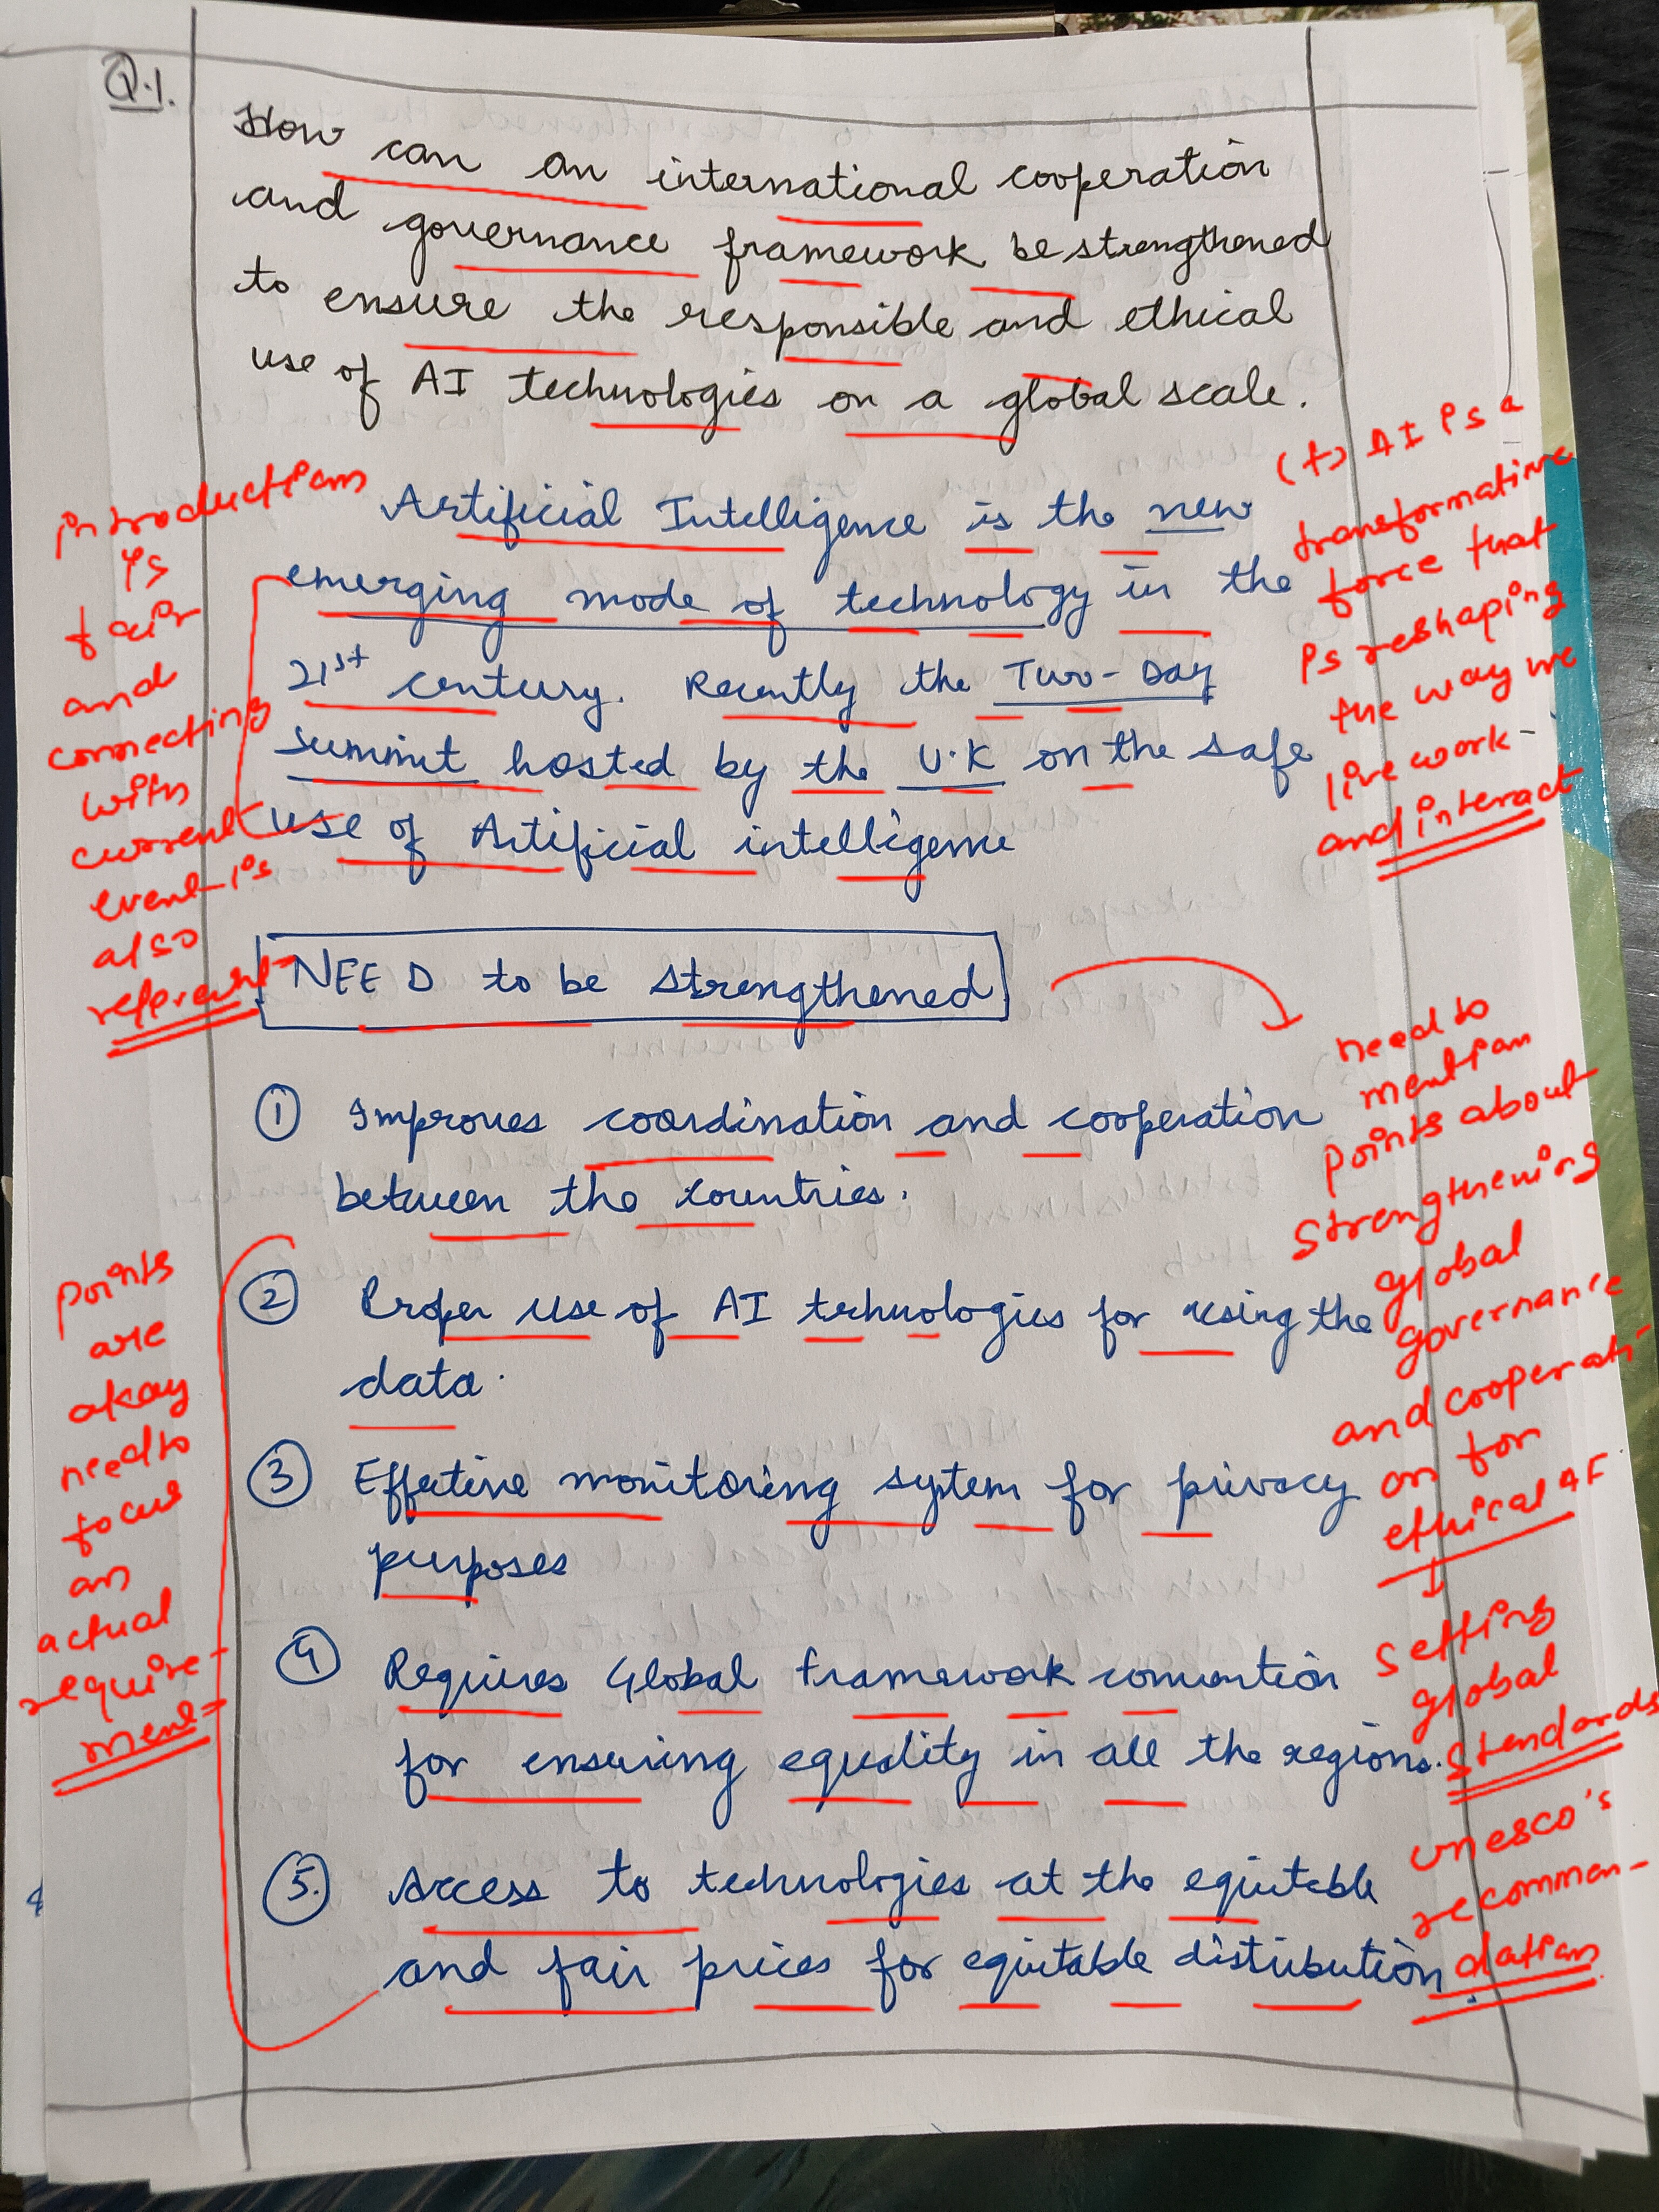 Q.1.
How can an international cooperation
and governance framework be strengthened
to ensure the responsible and ethical
use of AI technologies on a global scale.
Artificial Intelligence is the new
emerging mode of technology in the
21st century. Recently the Two-Day
summit hosted by the U.K on the safe
use of Artificial intelligence
introduction
is
fair
and
connecting
with
current
event is
also
(+) AI is a
transformative
force that
is reshaping
the way we
live work
and interact
NEED to be strengthened
need to
mention
points about
strengthening
global
governance
and cooperati-
on for
ethical AI
↓
setting
global
standards
unesco's
recommen-
dation
① Improves coordination and cooperation
between the countries.
② Proper use of AI technologies for using the
data.
③ Effective monitoring system for privacy
purposes
④ Requires Global framework convention
for ensuring equality in all the regions.
⑤ Access to technologies at the equitable
and fair prices for equitable distribution.
points
are
okay
need to
focus
on
actual
require-
ment